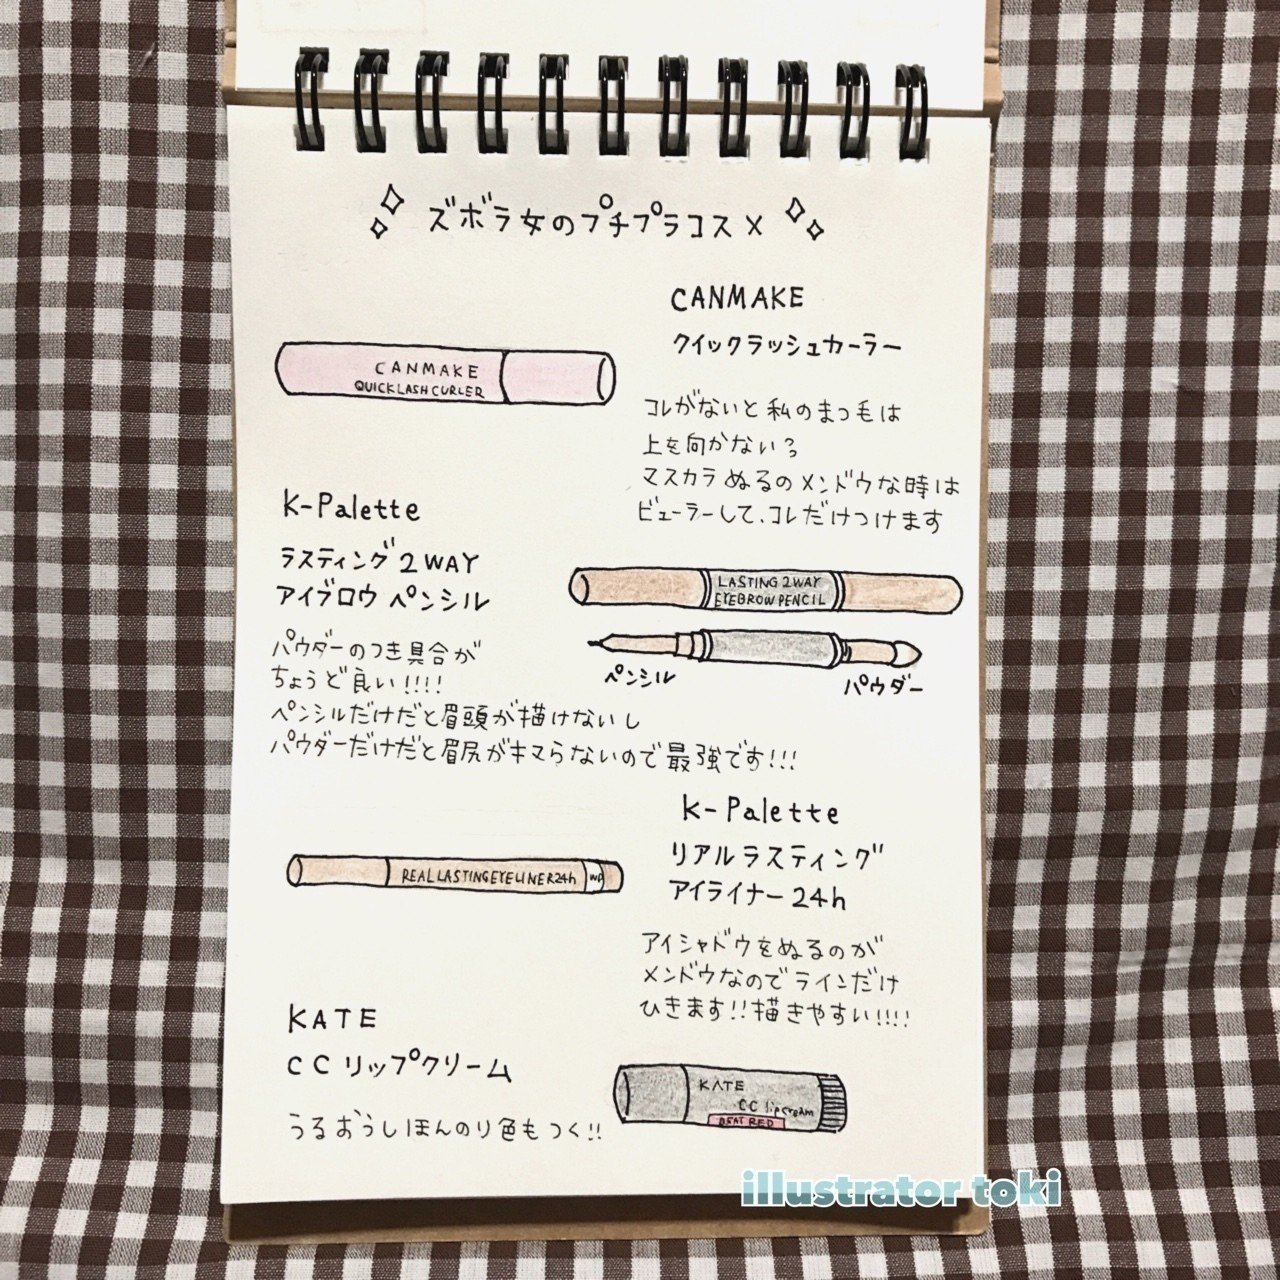 ズボラ女のプチプラコスメ
CANMAKE
クイックラッシュカーラー
CANMAKE
QUICK LASH CURLER
コレがないと私のまつ毛は
上を向かない?
マスカラぬるのメンドウな時は
ビューラーして、コレだけつけます
K-Palette
ラスティング2WAY
アイブロウ ペンシル
LASTING 2WAY
EYEBROW PENCIL
ペンシル
パウダー
パウダーのつき具合が
ちょうど良い!!!!
ペンシルだけだと眉頭が描けないし
パウダーだけだと眉尻がキマらないので最強です!!!
K-Palette
リアルラスティング
アイライナー24h
REAL LASTING EYELINER24h WP
アイシャドウをぬるのが
メンドウなのでラインだけ
ひきます!!描きやすい!!!!
KATE
CCリップクリーム
うるおうしほんのり色もつく!!
KATE
CC lip cream
BEAT RED
illustrator toki